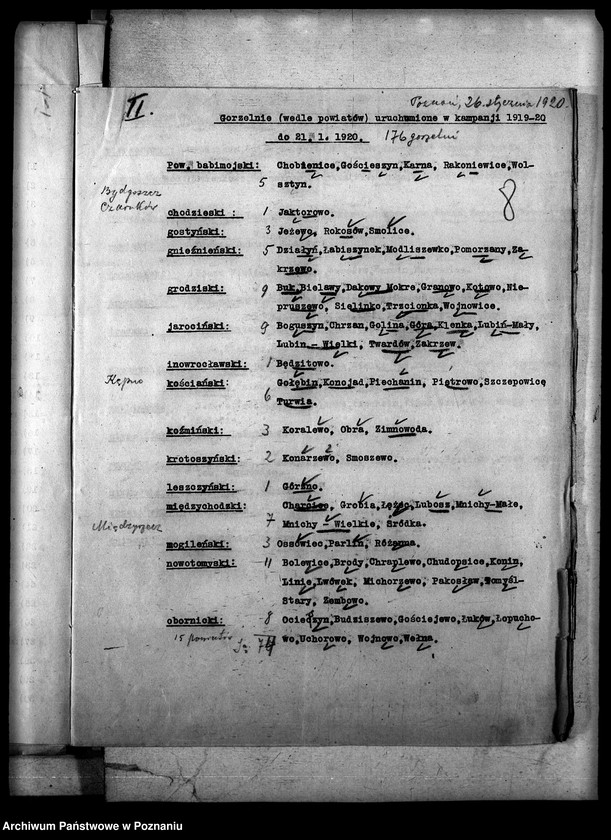 II.
Poznań, 26. stycznia 1920.
Gorzelnie (wedle powiatów) uruchomione w kampanji 1919-20
do 21. 1. 1920. 176 gorzelni
Pow. babimojski: Chobienice, Gościeszyn, Karna, Rakoniewice, Wol-
5 sztyn.
8
Bydgoszcz
Czarnków
chodzieski : 1 Jaktorowo.
gostyński: 3 Jeżewo, Rokosów, Smolice.
gnieźnieński: 5 Działyń, Łabiszynek, Modliszewko, Pomorzany, Za-
krzewo.
grodziski: 9 Buk, Bielawy, Dakowy Mokre, Granowo, Kotowo, Nie-
pruszewo, Sielinko, Trzcionka, Wojnowice.
jarociński: 9 Boguszyn, Chrzan, Golina, Góra, Klenka, Lubiń-Mały,
Lubin - Wielki, Twardów, Zakrzew.
inowrocławski: 1 Będzitowo.
Kępno
kościański: Gołębin, Konojad, Piechanin, Piotrowo, Szczepowice
6 Turwia.
koźmiński: 3 Koralewo, Obra, Zimnowoda.
krotoszyński: 2 Konarzewo, Smoszewo.
leszczyński: 1 Górzno.
międzychodzki: Charcice, Grobia, Łężec, Lubosz, Mnichy-Małe,
7 Mnichy - Wielkie, Śródka.
Międzyrzecz
mogileński: 3 Ossówiec, Parlin, Różanna.
nowotomyski: 11 Bolewice, Brody, Chraplewo, Chudopsice, Konin,
Linie, Lwówek, Michorzewo, Pakosław, Tomyśl-
Stary, Zembowo.
obornicki: 8 Ociedzyn, Budziszewo, Gościejewo, Łuków, Łopucho-
wo, Uchorowo, Wojnowo, Wełna.
15 powiatów
Archiwum Państwowe w Poznaniu